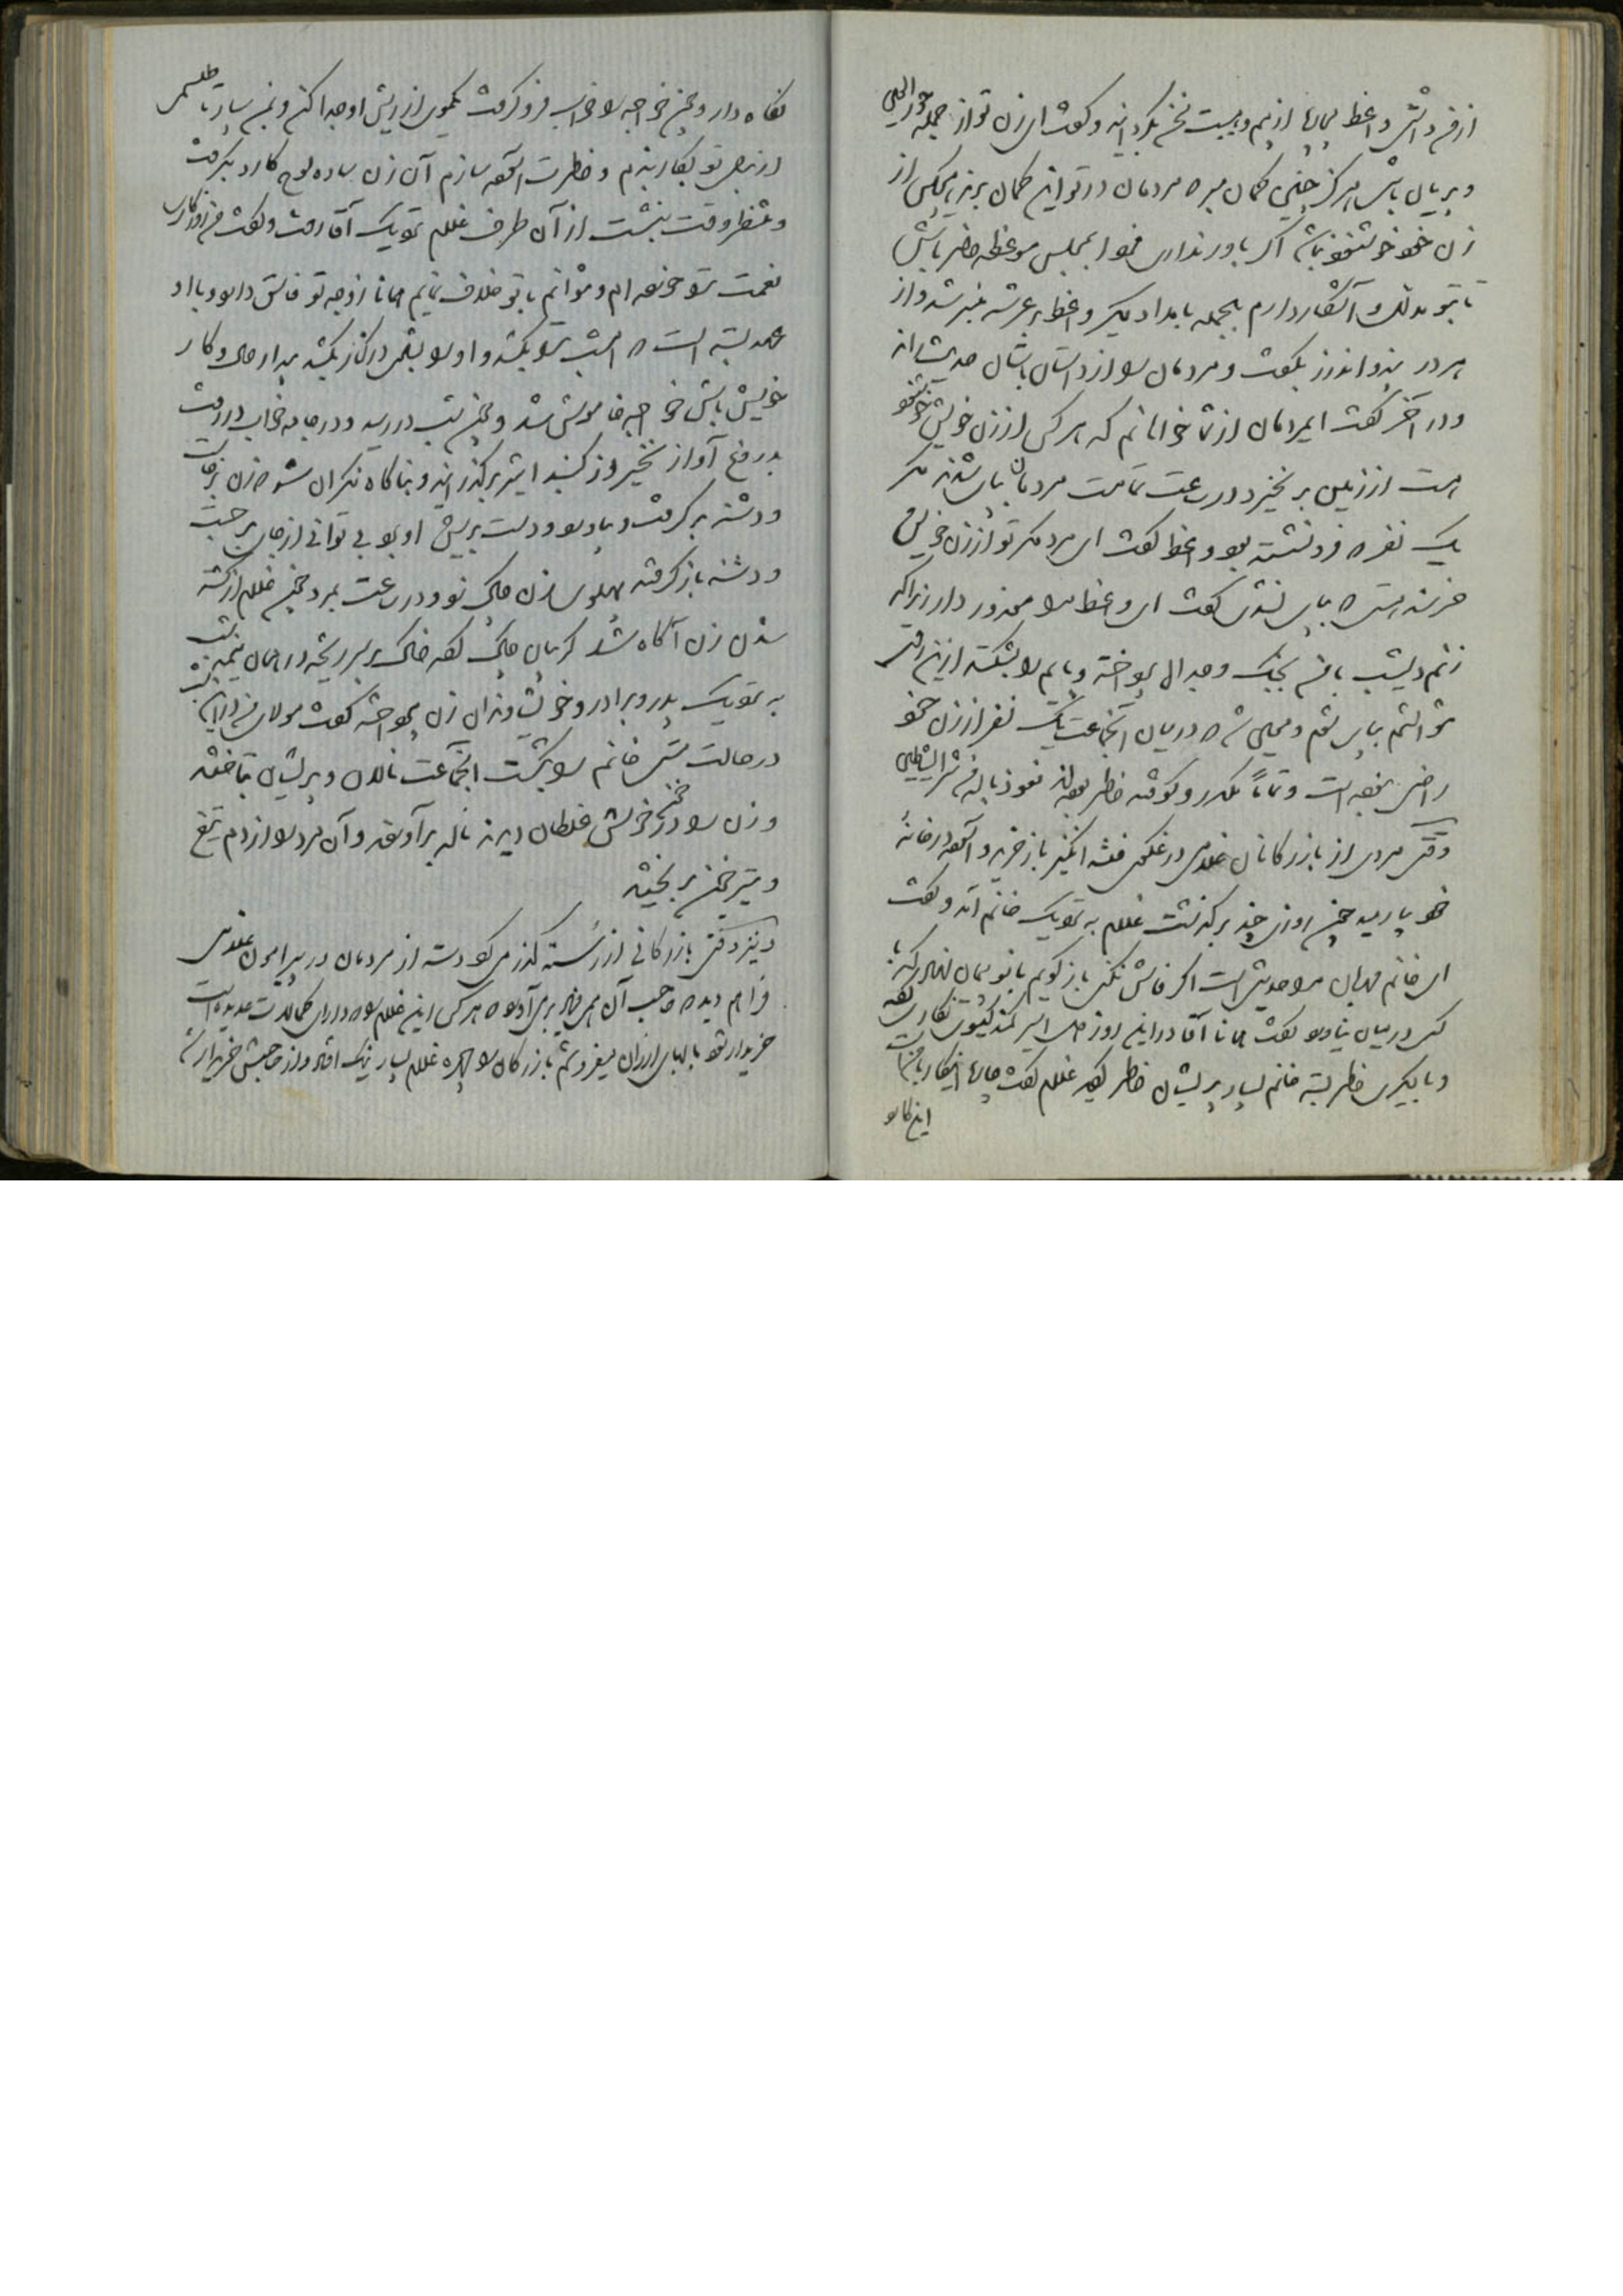 از فرد آتش واعظ بیچاره از بیم و هیبت سخن بگردانید و گفت ای زن تو از جمله حورالعین
و پریان باش هرگز چنین گمان مبر که مردمان در تو این گمان برند هیچکس از
زن خود خوشنود نباشد اگر باور نداری فردا بمجلس موعظه حاضر باش
تا بتو مدلل و آشکار دارم بالجمله بامداد دیگر واعظ بر عرشه منبر شد و از
هر در پند و اندرز بگفت و مردمان را از داستان باستان حدیث راند
و در آخر گفت ای مردمان از شما خواهانم که هر کس از زن خویش خوشنود
است از زمین برخیزد در ساعت تمامت مردمان بپای شدند مگر
یک نفر که فرو نشسته بود واعظ گفت ای مرد مگر تو از زن خویش
خرسند نیستی که بپای نشدی گفت ای واعظ مرا معذور دار زیرا که
زنم دیشب با من بجنگ و جدال پرداخته و پایم را بشکسته ازین رهگذر
نتوانستم بپای شوم و معلوم شد که در میان آنجماعت یک نفر از زن خود
راضی نبوده است و تماماً مکدر و کوفته خاطر بوده‌اند نعوذ بالله من شر الشیاطین
وقتی مردی از بازرگانان غلامی در غلمگی فتنه انگیز باز خرید و آنگه در خانهٔ
خود بیاورید چون روزی چند برگذشت غلام به نزدیک خانم آمد و گفت
ای خانم مهربان مرا حدیثی است اگر فاش نکنی باز گویم بانو پیمان نهاد که با
کس در میان نیاورد گفت همانا آقا در این روز دل اسیر کمند گیسوی نگاری کرده
و با دیگری خاطر بسته خانم بسیار پریشان خاطر گردید غلام گفت چاره اینکار با من است
این کارد
نگاه دار و چون خواجه را خواب فرو گرفت یکموی از ریش او جدا کن و بمن بسپار تا طلسمی
از بهر تو بکار بندم و خاطرت آسوده سازم آن زن ساده لوح کارد بگرفت
و منتظر وقت بنشست از آن طرف غلام نزدیک آقا رفت و گفت من روزگاری
نعمت تو خورده‌ام و نتوانم با تو خلاف نمایم همانا زوجه تو فاسقی دارد و با او
عهد بسته است که امشب ترا بکشد و او را بشوهری در کنار بکشد بیدار حال و کار
خویش باش خواجه خاموش شد و چون شب در رسید و در جامه خواب در رفت
بدروغ آواز نخیر از گنبد اثیر برگذرانید و بناگاه نگران شد که زن برخاست
و دشنه برگرفت و بیاورد و دست بریش او برد بی توانی از جای برجست
و دشنه باز گرفته پهلوی زن چاک نمود و در ساعت بمرد چون غلام از کشته
شدن زن آگاه شد گریبان چاک کرده خاک بر سر ریخته در همان نیمه شب
به نزدیک پدر و برادر و خویشاوندان زن پرداخته گفت مولای من در این شب
در حالت مستی خانم را بکشت آنجماعت نالان و پریشان بتاختند
و زن را در خون خویش غلطان دیدند ناله برآوردند و آن مرد را از دم تیغ
و تیر خون بریختند
و نیز وقتی بازرگانی از رسته گذر میکرد دسته از مردمان در پیرامون غلامی
فراهم دید که صاحب آن همی فریاد بر می‌آورد که هر کس این غلام را که دارای کمالات عدیده است
خریدار شود با بهای ارزان میفروشم بازرگان را چهره غلام بسیار نیک افتاد و از صاحبش خریدار شد